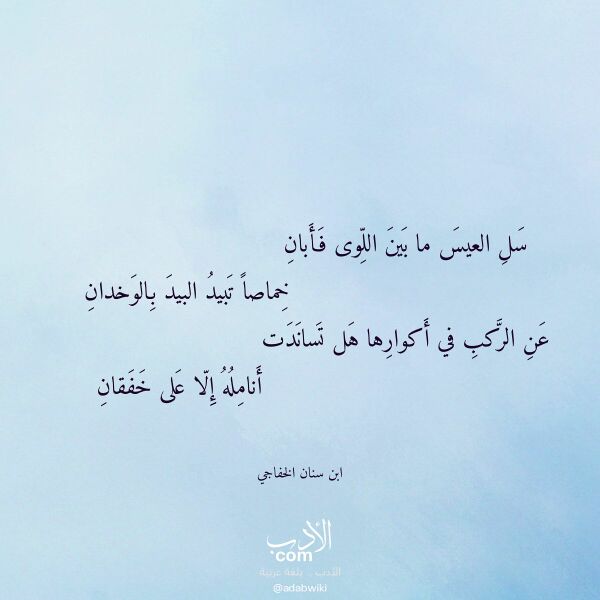 سَلِ العيسَ ما بَينَ اللّوى فَأَبانِ
خِماصاً تَبيدُ البيدَ بِالوَخدانِ
عَنِ الرَّكبِ في أَكوارِها هَل تَسانَدَت
أَنامِلُهُ إِلّا عَلى خَفَقانِ
ابن سنان الخفاجي
الأدب
com
الأدب .. بلغة عربية
@adabwiki